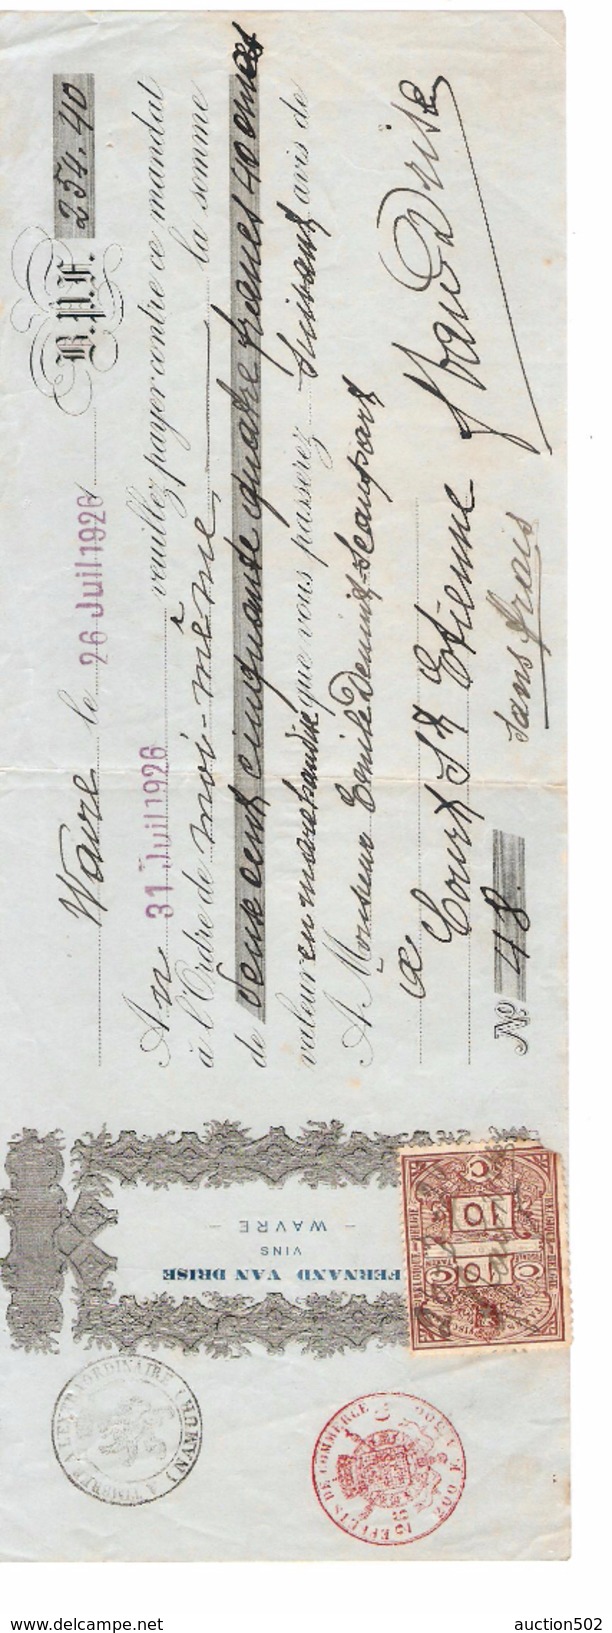 Wavre le 26 Juil 1926 B.P.F. 254.40
Au 31 Juil 1926 veuillez payer contre ce mandat
à l'Ordre de moi-même la somme
de Deux cent cinquante quatre francs 40 cmes
valeur en marchandise que vous passerez suivant avis de
A Monsieur Demint-Scaupart
a Court St Etienne
VanDrise
No 48 sans frais
FERNAND VAN DRISE
VINS
— WAVRE —
BELGIQUE - BELGIË
10 10
C C
EFFETS DE COMMERCE
auction502